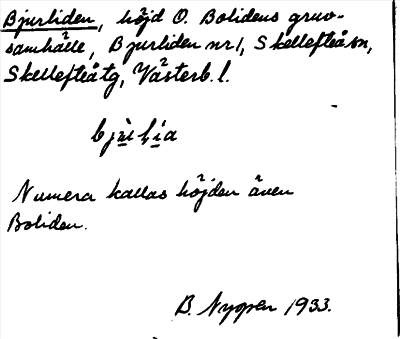 Bjurliden, höjd O. Bolidens gruv-
samhälle, Bjurliden nr 1, Skellefteå sn,
Skellefteå tg, Västerb. l.
Numera kallas höjden även
Boliden.
B. Nyper 1933.